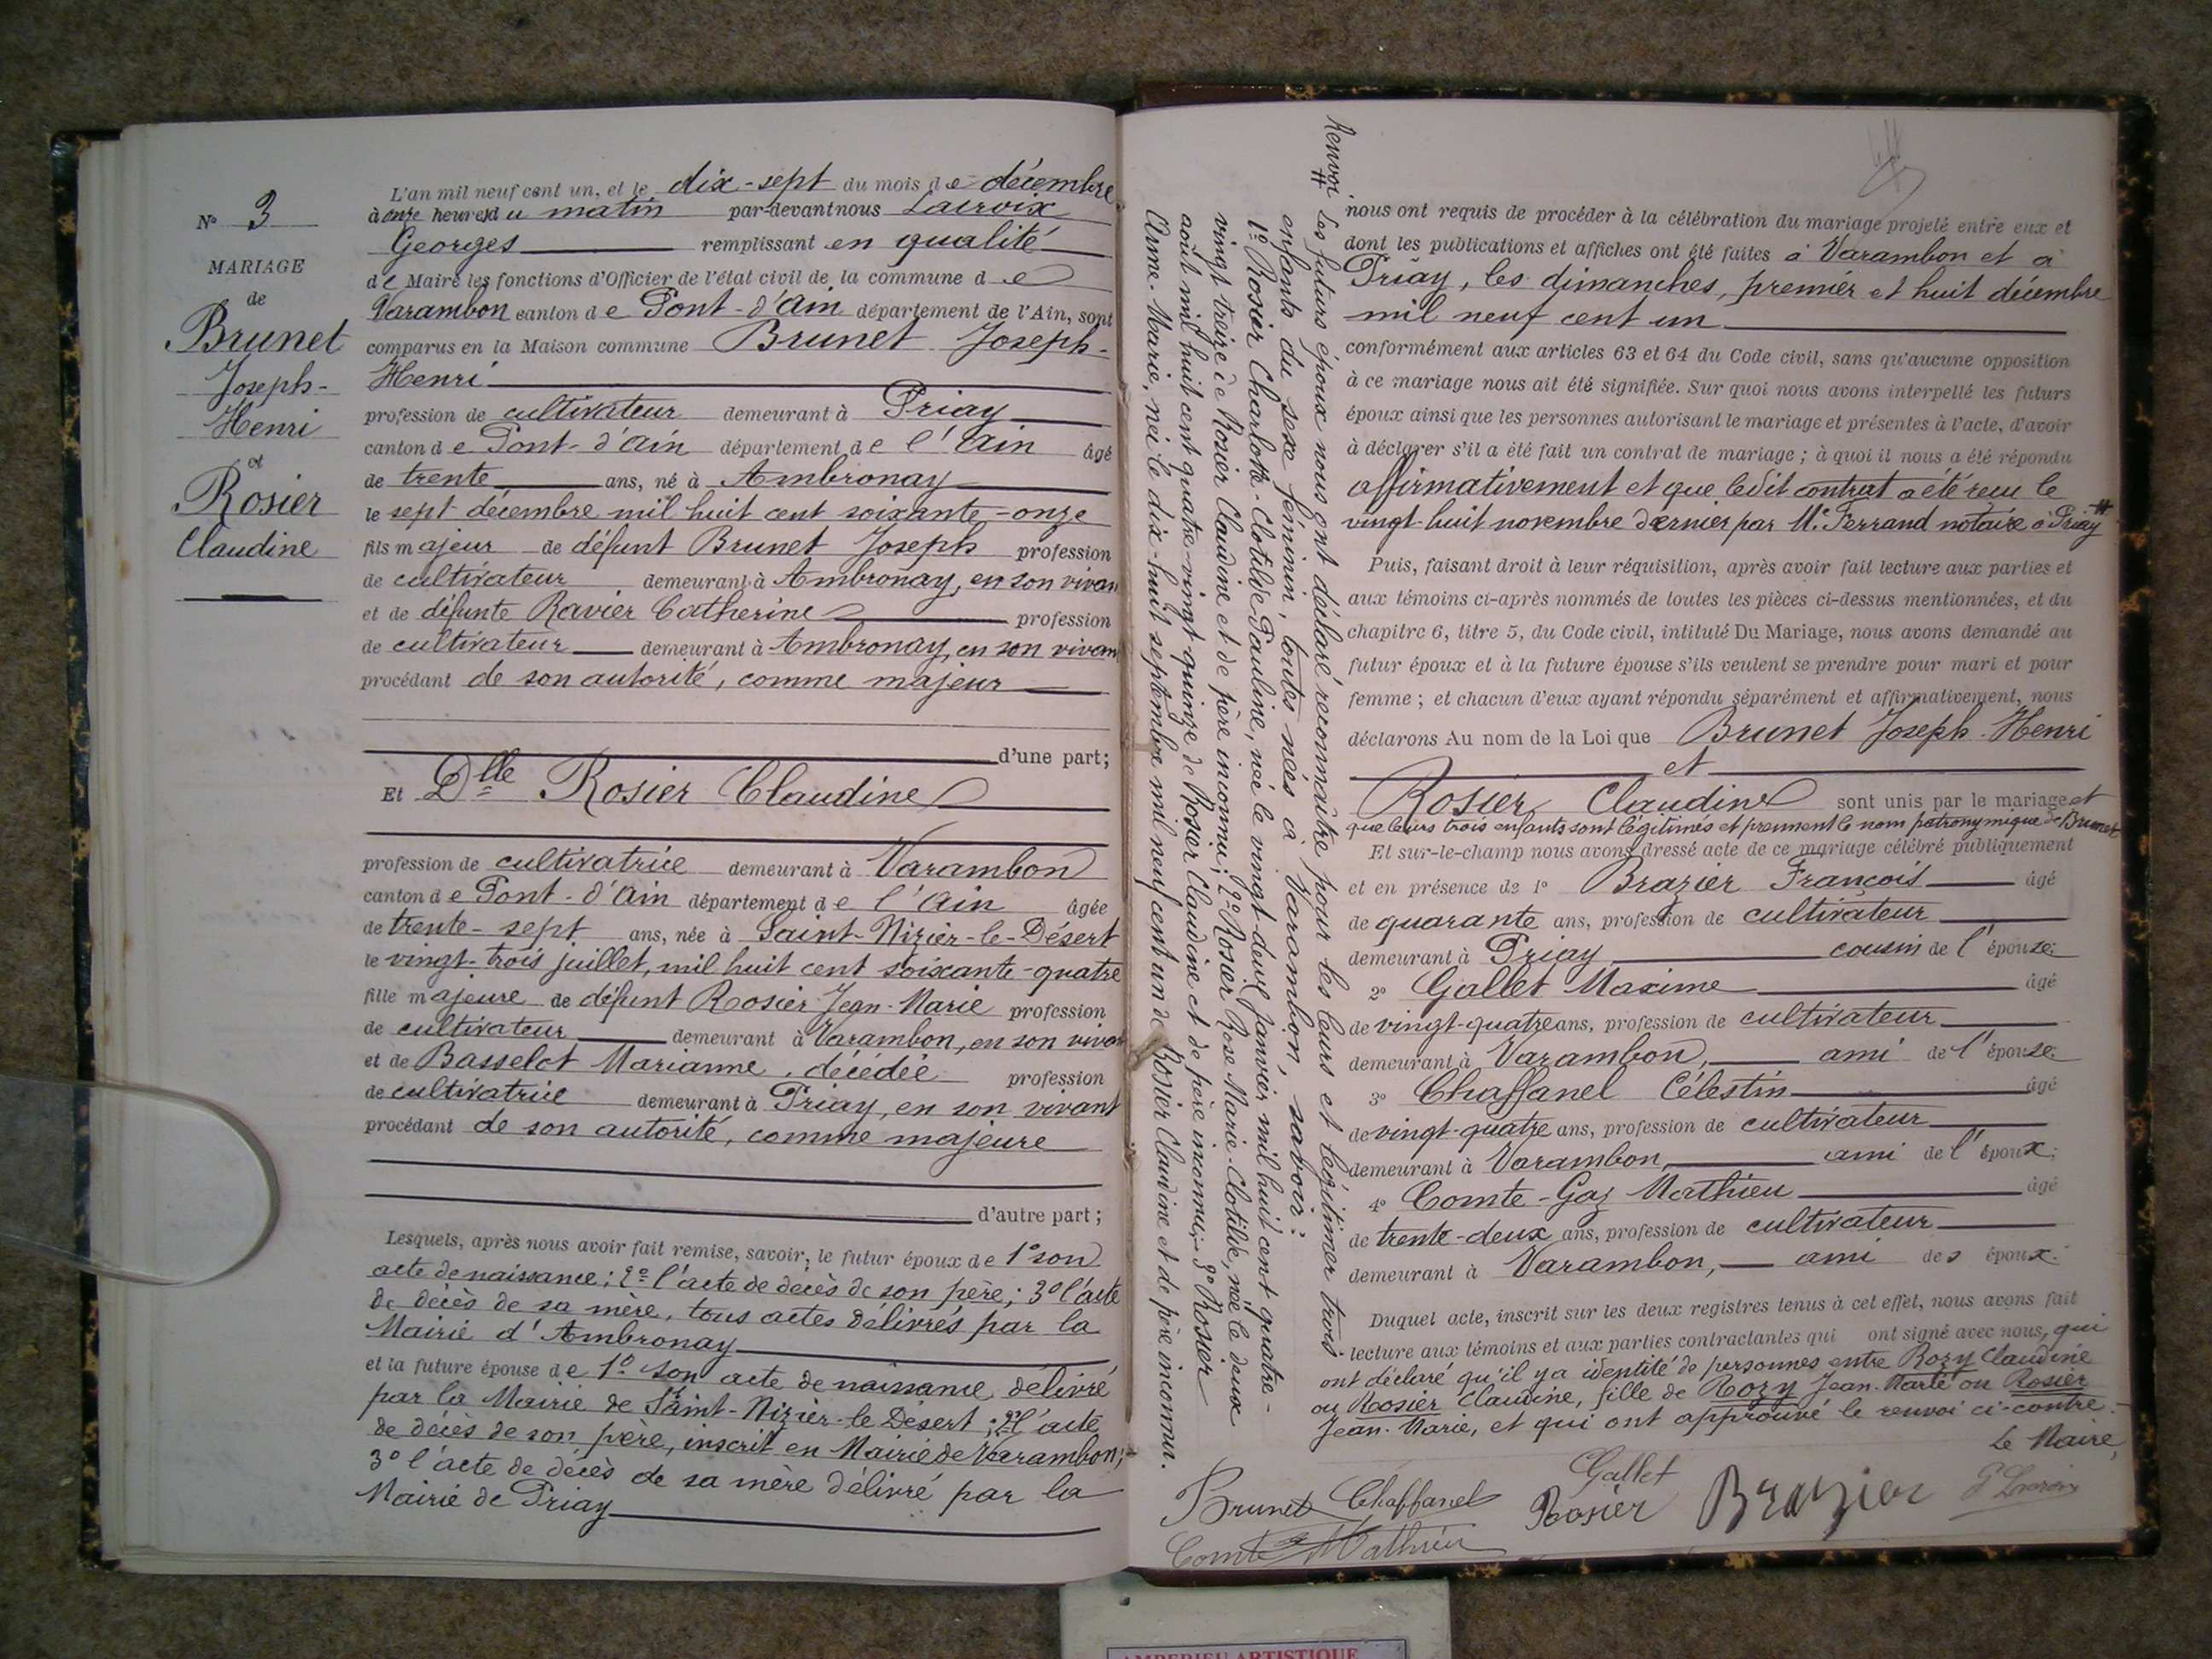 N° 3
MARIAGE
de
Brunet
Joseph-
Henri
et
Rosier
Claudine
L'an mil neuf cent un, et le dix-sept du mois de décembre
à onze heures du matin par-devant nous Lacroix
Georges remplissant en qualité
de Maire les fonctions d'Officier de l'état civil de la commune de
Varambon canton de Pont-d'Ain département de l'Ain, sont
comparus en la Maison commune Brunet Joseph-
Henri
profession de cultivateur demeurant à Priay
canton de Pont-d'Ain département de l'Ain âgé
de trente ans, né à Ambronay
le sept décembre mil huit cent soixante-onze
fils majeur de défunt Brunet Joseph profession
de cultivateur demeurant à Ambronay, en son vivan
et de défunte Ravier Catherine profession
de cultivateur demeurant à Ambronay, en son vivan
procédant de son autorité, comme majeur
d'une part;
Et Dlle Rosier Claudine
profession de cultivatrice demeurant à Varambon
canton de Pont-d'Ain département de l'Ain âgée
de trente-sept ans, née à Saint-Nizier-le-Désert
le vingt-trois juillet, mil huit cent soixante-quatre
fille majeure de défunt Rosier Jean-Marie profession
de cultivateur demeurant à Varambon, en son vivan
et de Basselot Marianne, décédée profession
de cultivatrice demeurant à Priay, en son vivant
procédant de son autorité, comme majeure
d'autre part;
Lesquels, après nous avoir fait remise, savoir; le futur époux de 1° son
acte de naissance; 2° l'acte de décès de son père; 3° l'acte
de décès de sa mère, tous actes délivrés par la
Mairie d'Ambronay
et la future épouse de 1° son acte de naissance délivré
par la Mairie de Saint-Nizier-le-Désert; 2° l'acte
de décès de son père, inscrit en Mairie de Varambon;
3° l'acte de décès de sa mère délivré par la
Mairie de Priay
Renvoi # Les futurs époux nous ont déclaré reconnaître pour les leurs et légitimer trois
enfants du sexe féminin, toutes nées à Varambon, savoir:
1° Rosier Charlotte-Clotilde-Pauline, née le vingt-deux janvier mil huit cent quatre-
vingt treize de Rosier Claudine et de père inconnu; 2° Rosier Rose-Marie-Clotilde, née le deux
août mil huit cent quatre-vingt-quinze de Rosier Claudine et de père inconnu; 3° Rosier
Anne-Marie, née le dix-huit septembre mil neuf cent un de Rosier Claudine et de père inconnu.
nous ont requis de procéder à la célébration du mariage projeté entre eux et
dont les publications et affiches ont été faites à Varambon et à
Priay, les dimanches, premier et huit décembre
mil neuf cent un
conformément aux articles 63 et 64 du Code civil, sans qu'aucune opposition
à ce mariage nous ait été signifiée. Sur quoi nous avons interpellé les futurs
époux ainsi que les personnes autorisant le mariage et présentes à l'acte, d'avoir
à déclarer s'il a été fait un contrat de mariage; à quoi il nous a été répondu
affirmativement et que ledit contrat a été reçu le
vingt-huit novembre dernier par Me Ferrand notaire à Priay #
Puis, faisant droit à leur réquisition, après avoir fait lecture aux parties et
aux témoins ci-après nommés de toutes les pièces ci-dessus mentionnées, et du
chapitre 6, titre 5, du Code civil, intitulé Du Mariage, nous avons demandé au
futur époux et à la future épouse s'ils veulent se prendre pour mari et pour
femme; et chacun d'eux ayant répondu séparément et affirmativement, nous
déclarons Au nom de la Loi que Brunet Joseph-Henri
et
Rosier Claudine sont unis par le mariage et
que leurs trois enfants sont légitimés et prennent le nom patronymique de Brunet
Et sur-le-champ nous avons dressé acte de ce mariage célébré publiquement
et en présence de 1° Brazier François âgé
de quarante ans, profession de cultivateur
demeurant à Priay cousin de l'épouse;
2° Gallet Maxime âgé
de vingt-quatre ans, profession de cultivateur
demeurant à Varambon, ami de l'épouse;
3° Chaffanel Célestin âgé
de vingt-quatre ans, profession de cultivateur
demeurant à Varambon, ami de l'époux;
4° Comte-Gaz Mathieu âgé
de trente-deux ans, profession de cultivateur
demeurant à Varambon, ami des époux.
Duquel acte, inscrit sur les deux registres tenus à cet effet, nous avons fait
lecture aux témoins et aux parties contractantes qui ont signé avec nous, qui
ont déclaré qu'il y a identité de personnes entre Rozy Claudine
ou Roosier Claudine, fille de Rozy Jean-Marie ou Rosier
Jean-Marie, et qui ont approuvé le renvoi ci-contre.
Le Maire,
Brunet Chaffanel Gallet Rosier Brazier G Lacroix
Comte Mathieu
AMBERIEU ARTISTIQUE